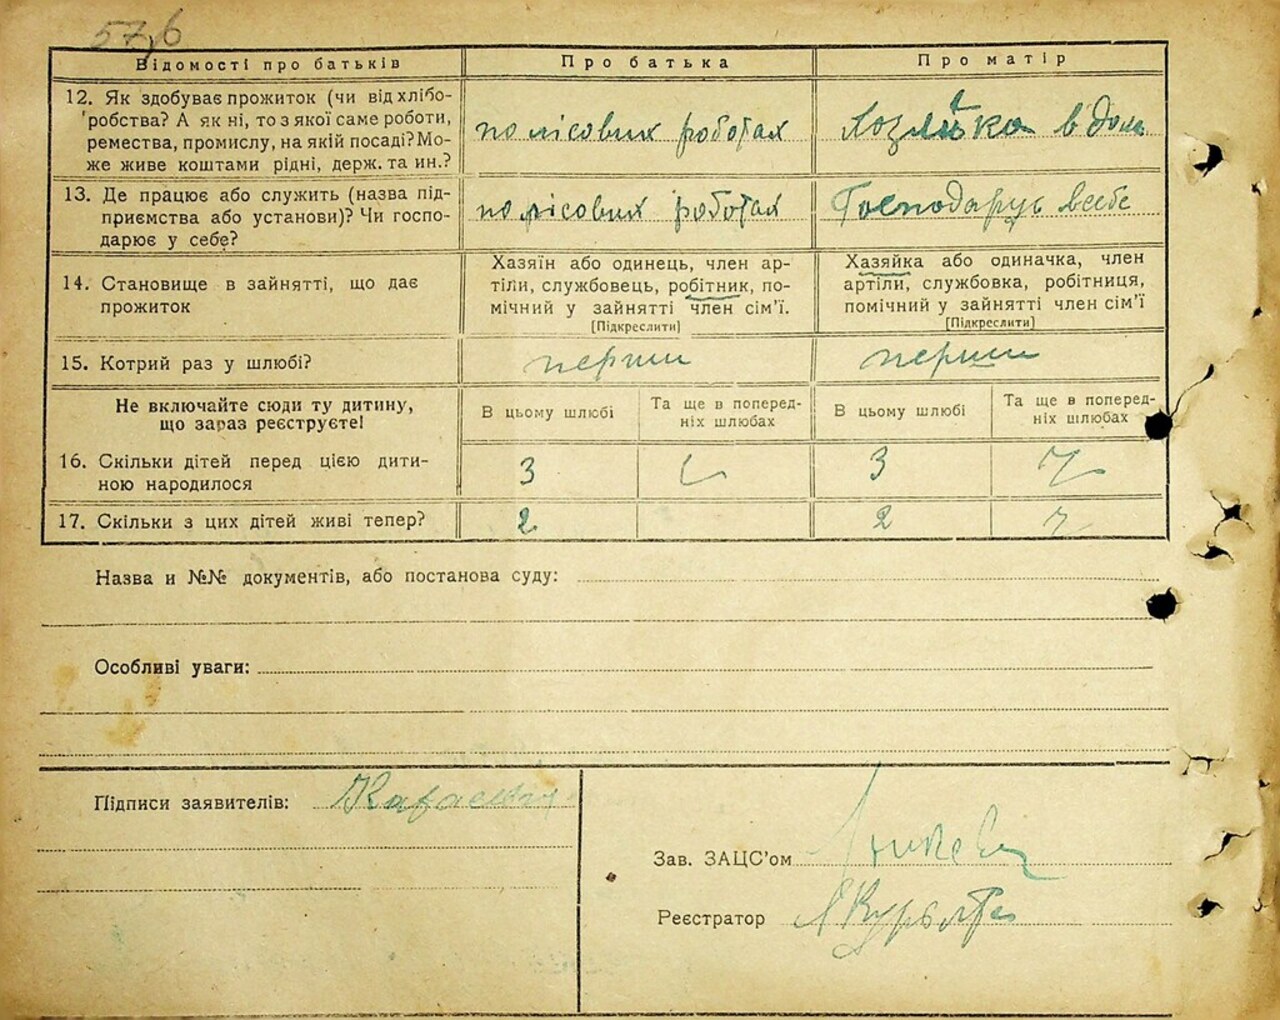 57,6
Відомості про батьків
Про батька
Про матір
12. Як здобуває прожиток (чи від хлібо-
робства? А як ні, то з якої саме роботи,
ремества, промислу, на якій посаді? Мо-
же живе коштами рідні, держ. та ин.?
по лісових роботах
в дом
13. Де працює або служить (назва під-
приємства або установи)? Чи госпо-
дарює у себе?
по лісових роботах
Господарує в себе
14. Становище в зайнятті, що дає
прожиток
Хазяїн або одинець, член ар-
тіли, службовець, робітник, по-
мічний у зайнятті член сім'ї.
[Підкреслити]
Хазяйка або одиначка, член
артіли, службовка, робітниця,
помічний у зайнятті член сім'ї
[Підкреслити]
15. Котрий раз у шлюбі?
перший
перший
Не включайте сюди ту дитину,
що зараз реєструєте!
В цьому шлюбі
Та ще в поперед-
ніх шлюбах
В цьому шлюбі
Та ще в поперед-
ніх шлюбах
16. Скільки дітей перед цією дити-
ною народилося
3
3
17. Скільки з цих дітей живі тепер?
2
2
Назва и №№ документів, або постанова суду:
Особливі уваги:
Підписи заявителів:
Зав. ЗАЦС'ом
Реєстратор